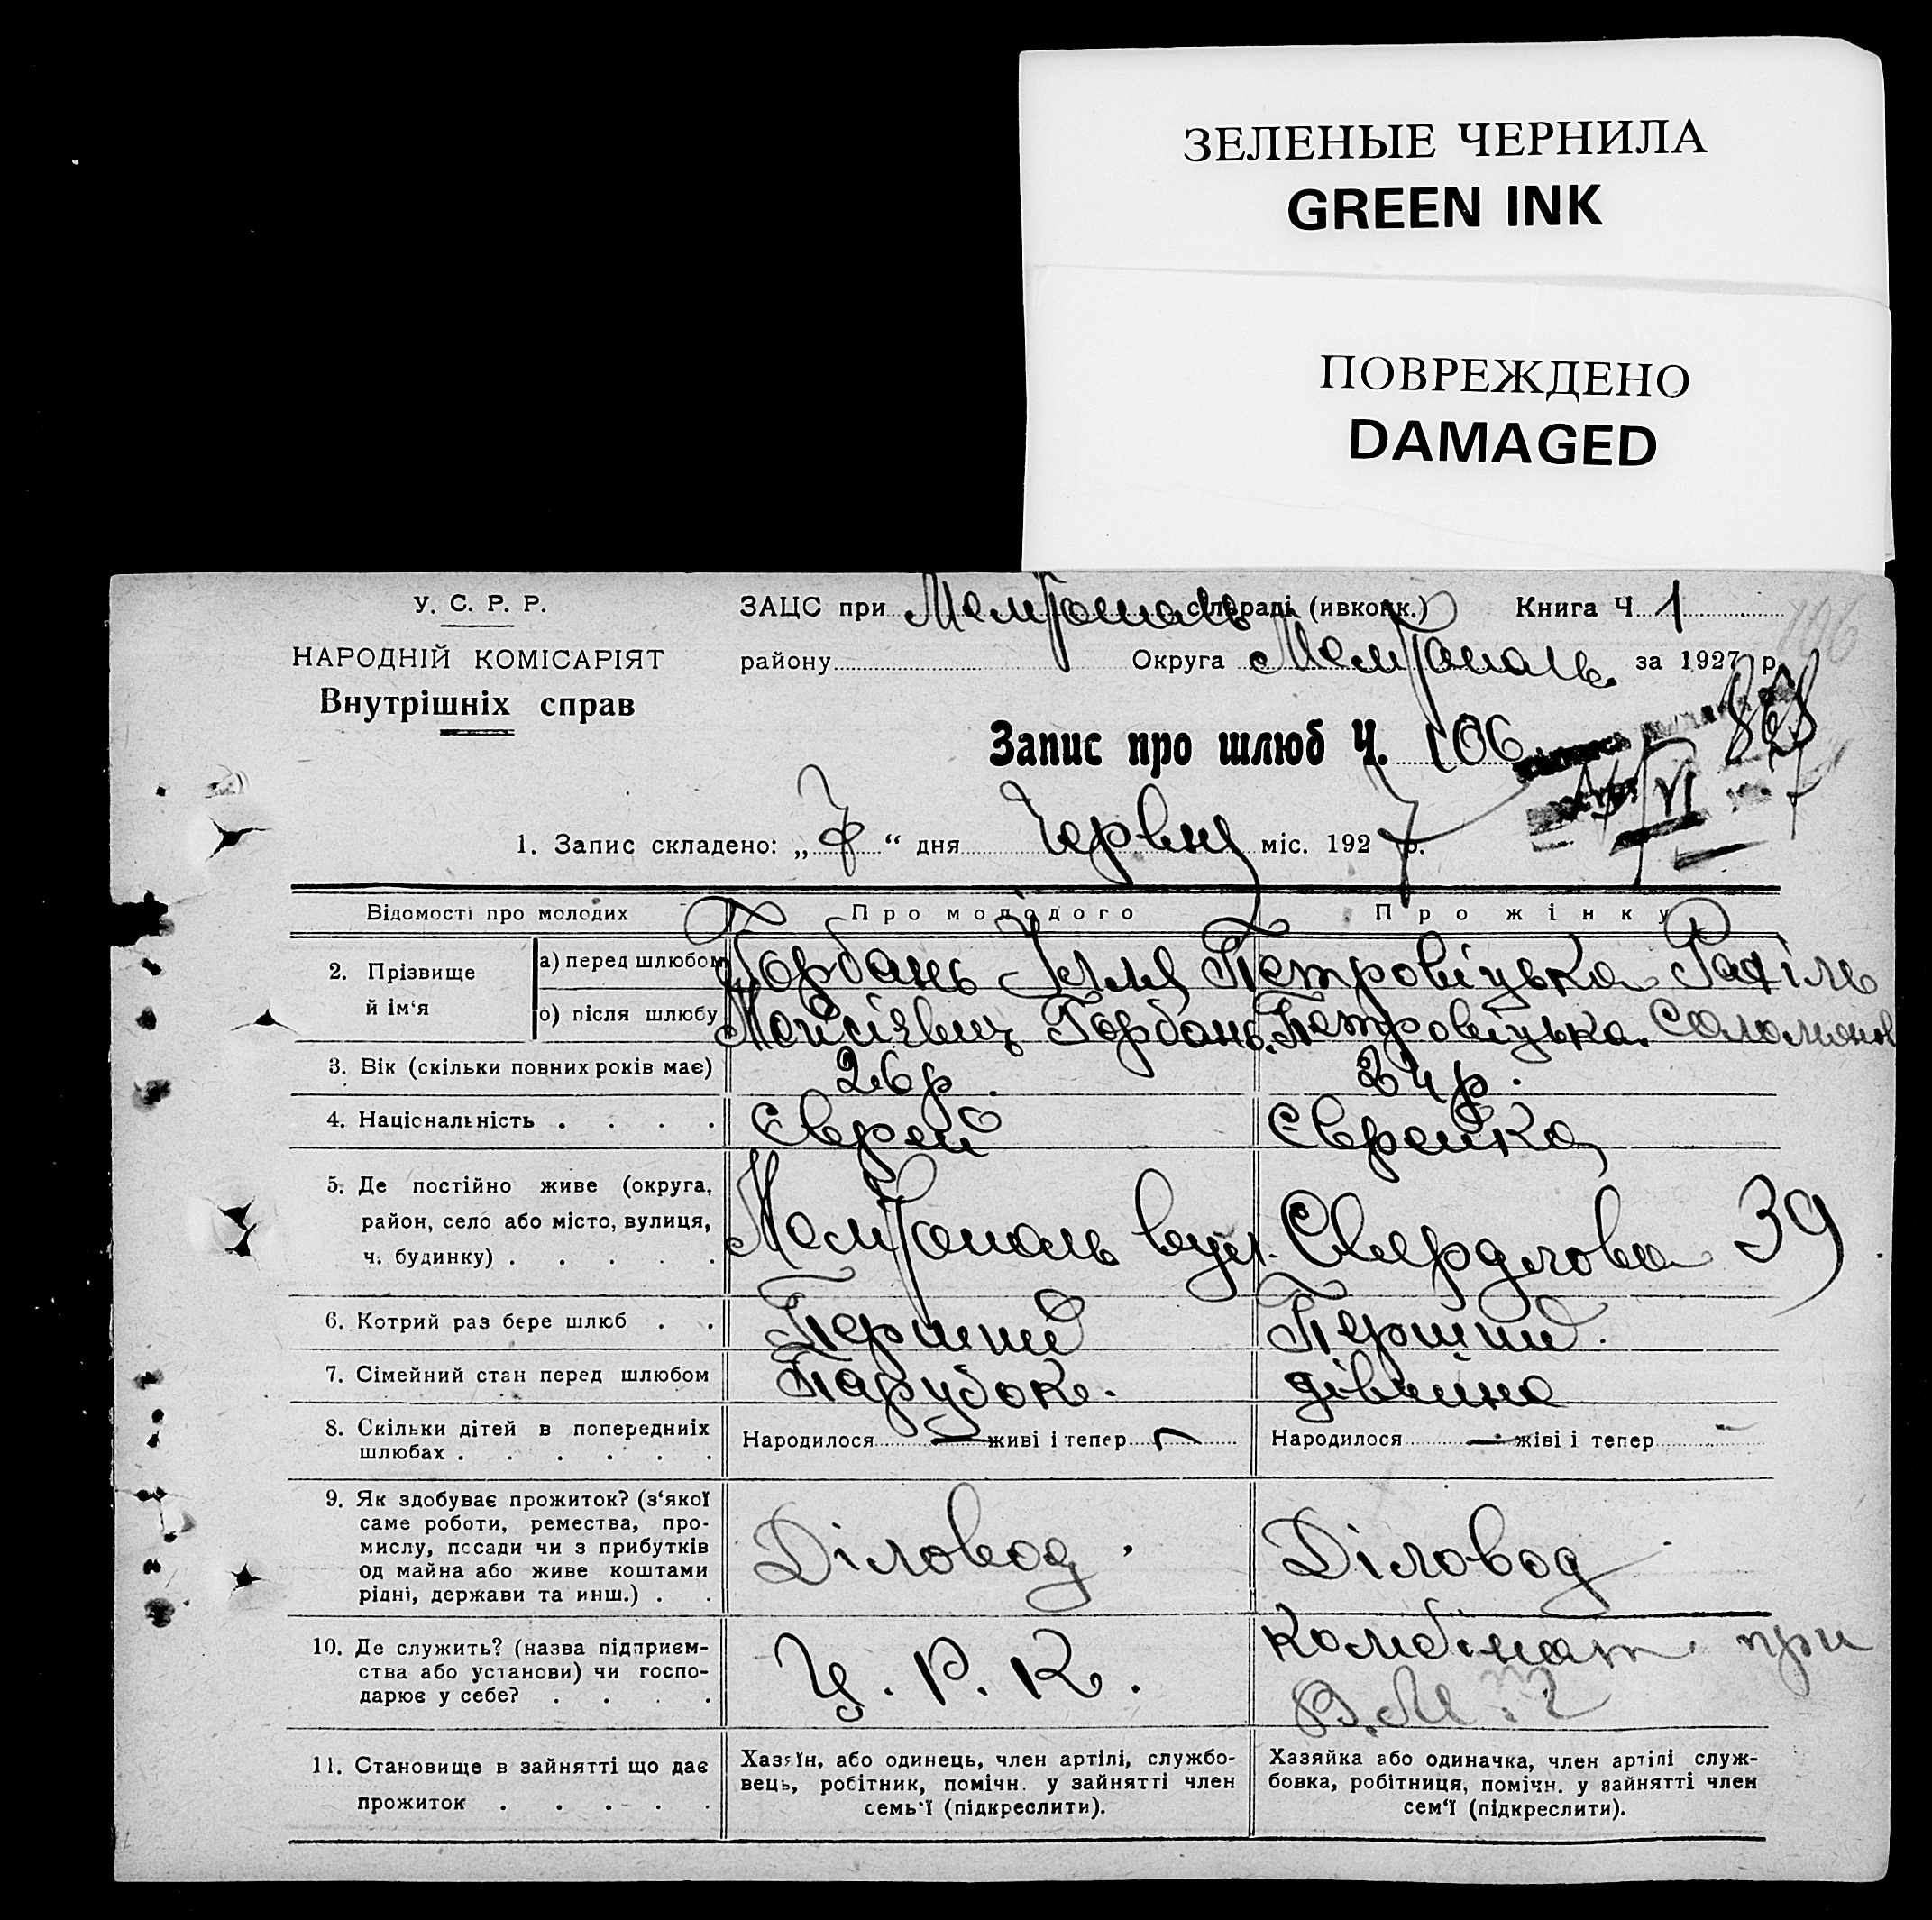 ЗЕЛЕНЫЕ ЧЕРНИЛА
GREEN INK
ПОВРЕЖДЕНО
DAMAGED
У. С. Р. Р.
НАРОДНІЙ КОМІСАРІЯТ
Внутрішніх справ
ЗАЦС при Мелітополь сільраді (ивконк.) Книга Ч. 1
району Округа Мелітополь. за 1927 р.
106
Запис про шлюб Ч. 106
868
1. Запис складено: „7“ дня Червня міс. 1927 р.
Відомості про молодих Про молодого Про жінку
2. Прізвище й ім‘я
а) перед шлюбом Горбань Ілля Петровіцька Рахіль
о) після шлюбу Мойсієвич Горбань. Петровіцька. Соломонов
3. Вік (скільки повних років має) 26 р. 24 р.
4. Національність . . . . Єврей Єврейка
5. Де постійно живе (округа, район, село або місто, вулиця, ч. будинку) . . . . . Мелітополь вул. Свердлова 39
6. Котрий раз бере шлюб . . Перший Перший.
7. Сімейний стан перед шлюбом Парубок. дівчина
8. Скільки дітей в попередниіх шлюбах . . . . . . Народилося — живі і тепер — Народилося — жіві і тепер —
9. Як здобуває прожиток? (з‘якої саме роботи, ремества, промислу, посади чи з прибутків од майна або живе коштами рідні, держави та инш.) . . Діловод Діловод
10. Де служить? (назва підприємства або установи) чи господарює у себе? . . . . Ц. Р. К. Комбінат при
11. Становище в зайнятті що дає прожиток . . . . .
Хазяїн, або одинець, член артілі, службовець, робітник, помічн. у зайнятті член семь‘ї (підкреслити).
Хазяйка або одиначка, член артілі службовка, робітниця, помічн. у зайнятті член сем‘ї (підкреслити).